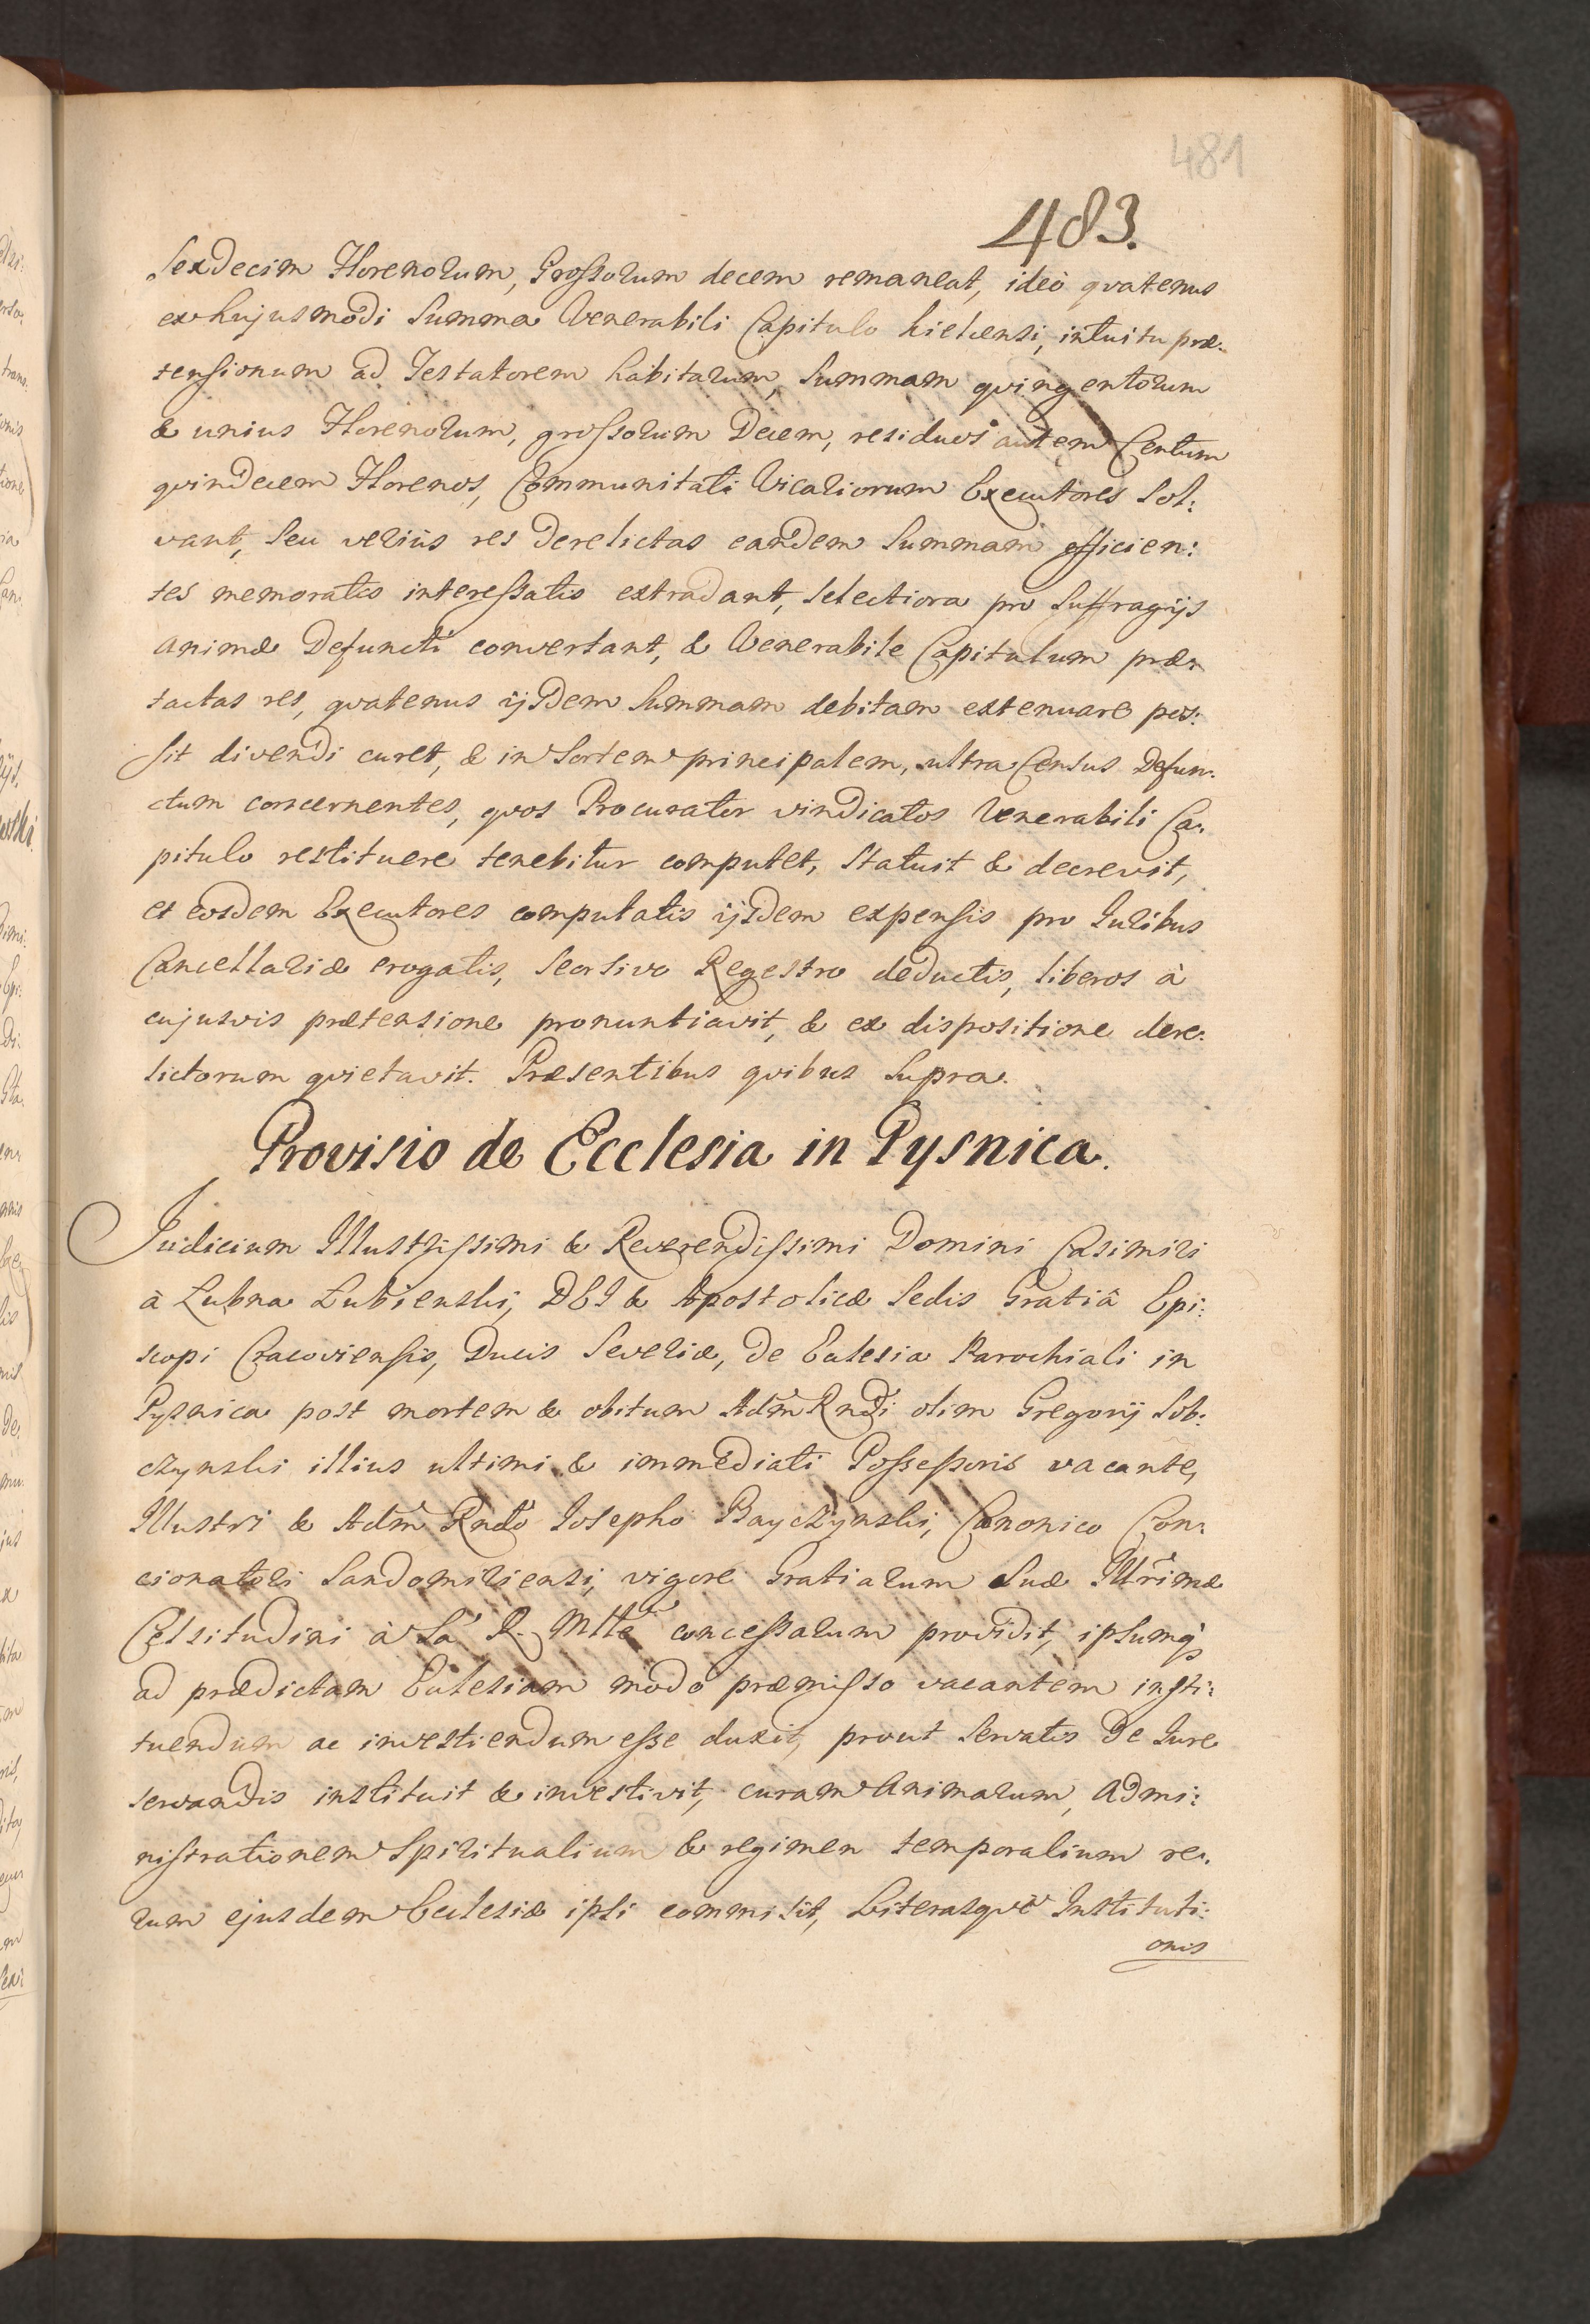 481
483.
Sexdecim Florenorum, Grossorum decem remaneat, ideò qvatenus
ex hujusmodi Summa Venerabili Capitulo Kielcensi, intuitu præ-
tensionum ad Testatorem habitarum, Summam qvingentorum
& unius Florenorum, grossorum Decem, residuos autem Centum
qvindecem Florenos, Communitati Vicariorum Executores Sol:
vant, Seu veriùs res Derelictas eandem Summam efficien:
tes memoratis interessatis extradant, selectiora pro Suffragijs
animæ Defuncti convertant, & Venerabile Capitulum præ-
tactas res, qvatenus ijsdem Summam debitam extenuare pos:
sit divendi curet, & in Sortem principalem, ultra Census Defun-
ctum concernentes, qvos Procurator vindicatos Venerabili Ca-
pitulo restituere tenebitur computet, Statuit & decrevit,
et eosdem Executores computatis ijsdem expensis pro Iuribus
Cancellariæ erogatis, Seorsivo Regestro deductis, liberos à
cujusvis prætensione pronuntiavit, & ex dispositione dere-
lictorum qvietavit. Præsentibus qvibus Supra.
Provisio de Ecclesia in Pysnica.
Iudicium Illustrissimi & Reverendissimi Domini Casimiri
à Łubna Łubienski, DEI & Apostolicæ Sedis Gratiâ Epi:
scopi Cracoviensis, Ducis Severiæ, De Ecclesia Parochiali in
Pysnica post mortem & obitum Adm Rndi olim Gregorij Sob:
czynski illius ultimi & immediati Possessoris vacante,
Illustri & Adm Rndo Iosepho Bayczynski, Canonico Con-
cionatori Sandomiriensi, vigore Gratiarum Suæ Illrimæ
Celsitudini à Sa R. Mtte concessarum providit, ipsumq
ad prædictam Ecclesiam modo præmisso vacantem insti:
tuendum ac investiendum esse duxit, prout Servatis De Iure
servandis instituit & investivit, curam Animarum, Admi:
nistrationem Spiritualium & regimen temporalium re-
rum ejusdem Ecclesiæ ipsi commisit, Literasqve Instituti-
onis